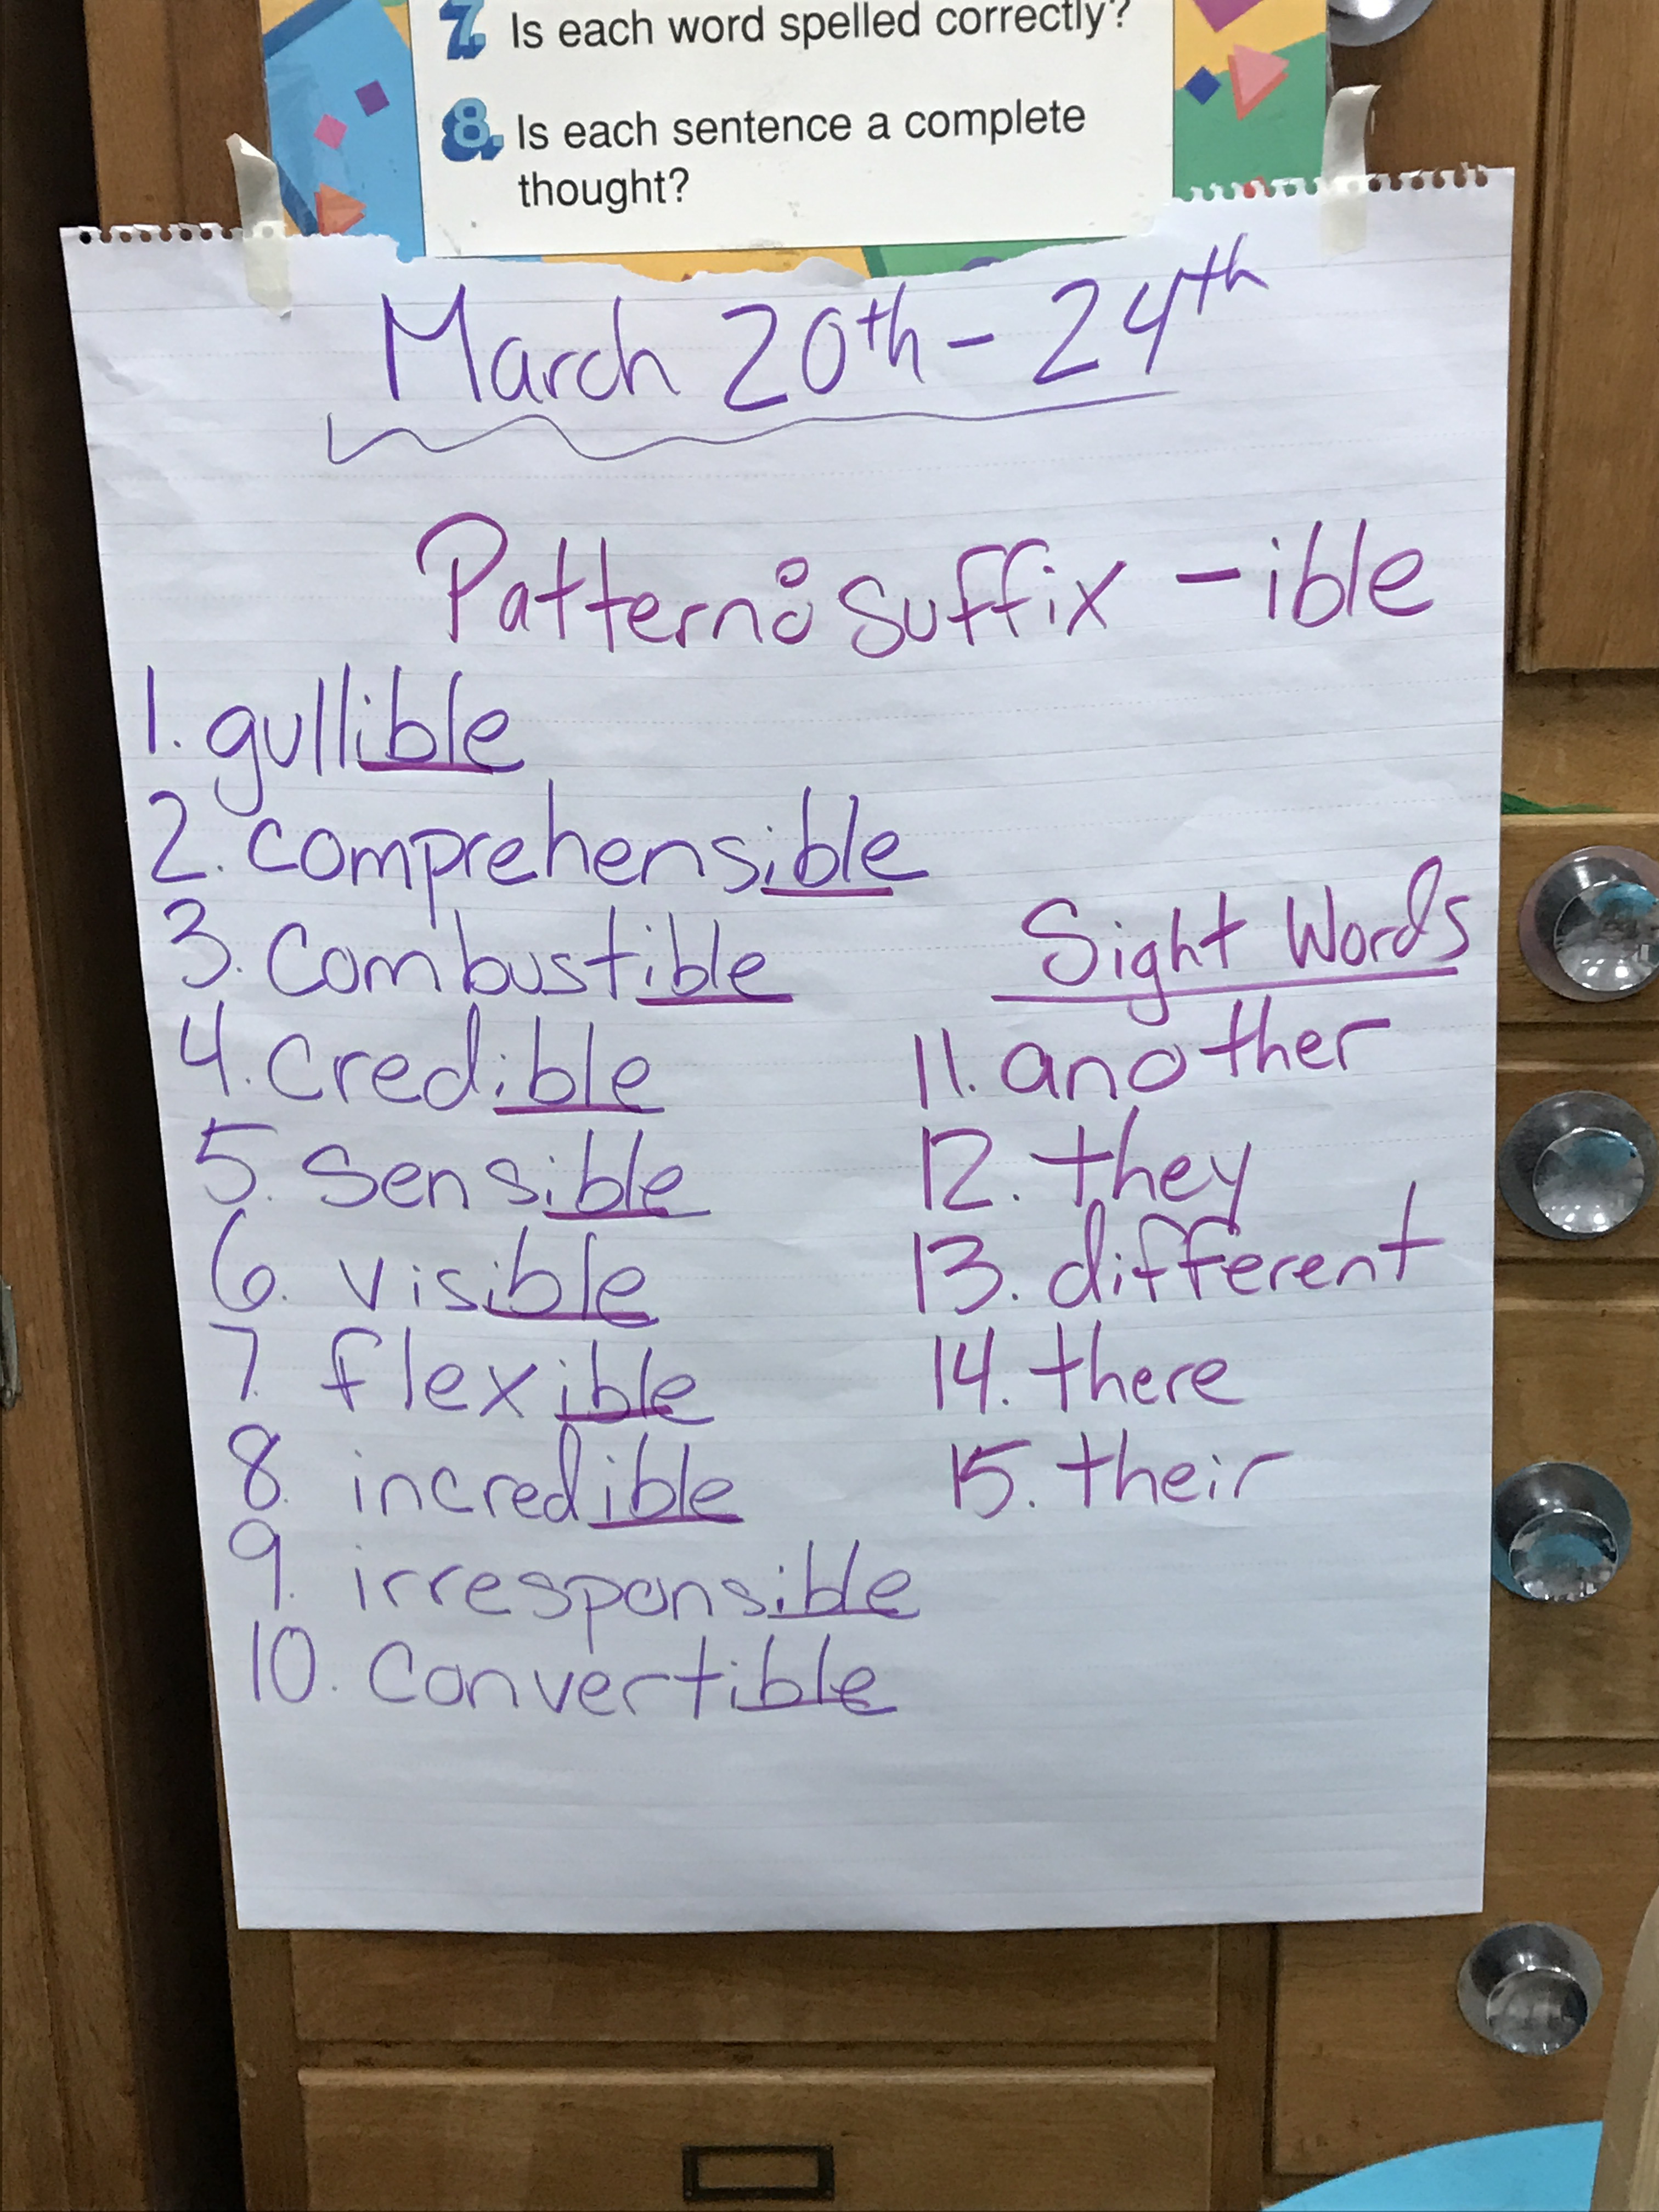 7. Is each word spelled correctly?
8. Is each sentence a complete
thought?
March 20th - 24th
Pattern: suffix -ible
1. gullible
2. comprehensible
3. combustible
4. credible
5. sensible
6. visible
7. flexible
8. incredible
9. irresponsible
10. convertible
Sight Words
11. another
12. they
13. different
14. there
15. their